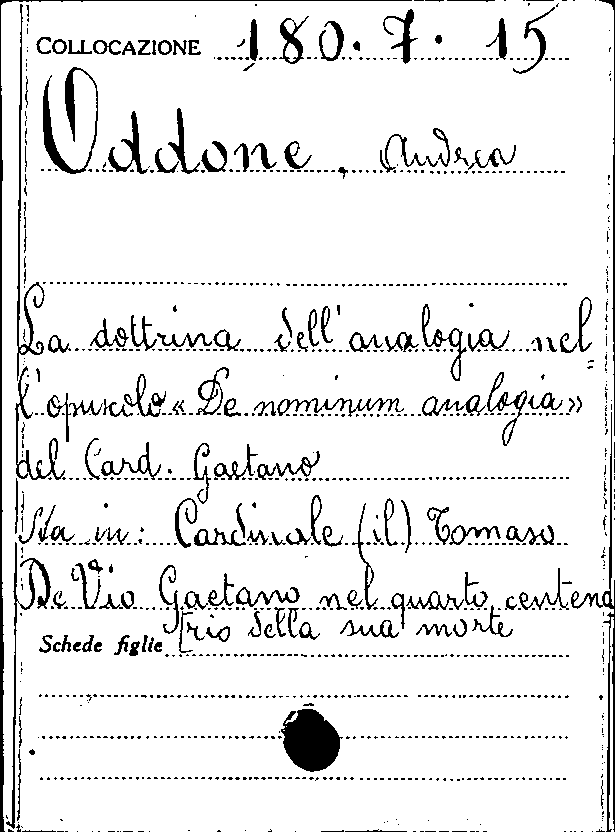 COLLOCAZIONE 180. 7. 15
Oddone, Andrea
La dottrina dell'analogia nel=
l'opuscolo « De nominum analogia»
del Card. Gaetano
Sta in: Cardinale (il) Tomaso
De Vio Gaetano nel quarto centena
rio della sua morte
Schede figlie